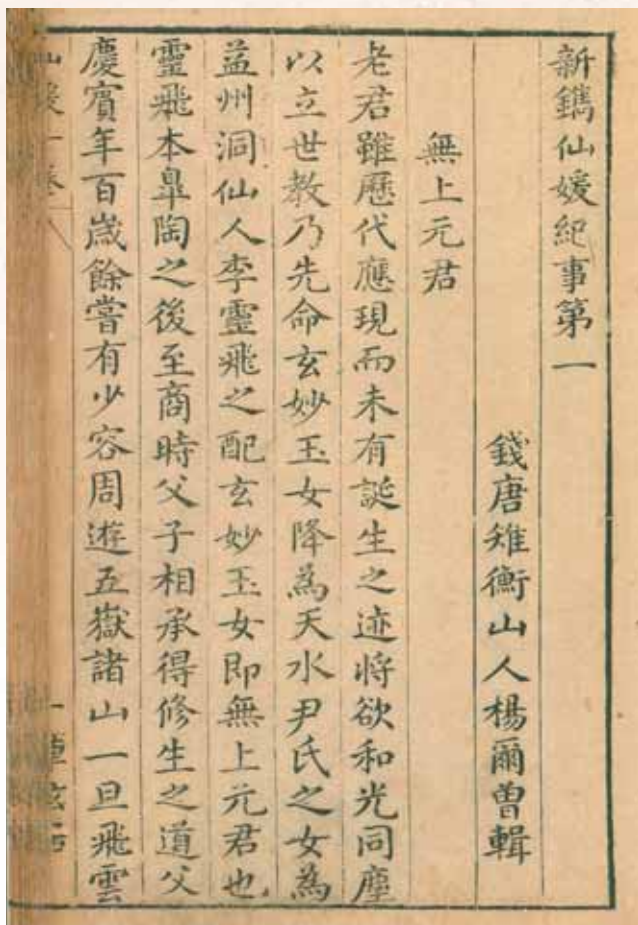 新鐫仙媛紀事第一
錢唐雉衡山人楊爾曽輯
無上元君
老君雖歷代應現而未有誕生之迹將欲和光同塵
以立世教乃先命玄妙玉女降為天水尹氏之女為
益州洞仙人李靈飛之配玄妙玉女即無上元君也
靈飛本皐陶之後至商時父子相承得修生之道父
慶賓年百歲餘嘗有少容周遊五嶽諸山一旦飛雲